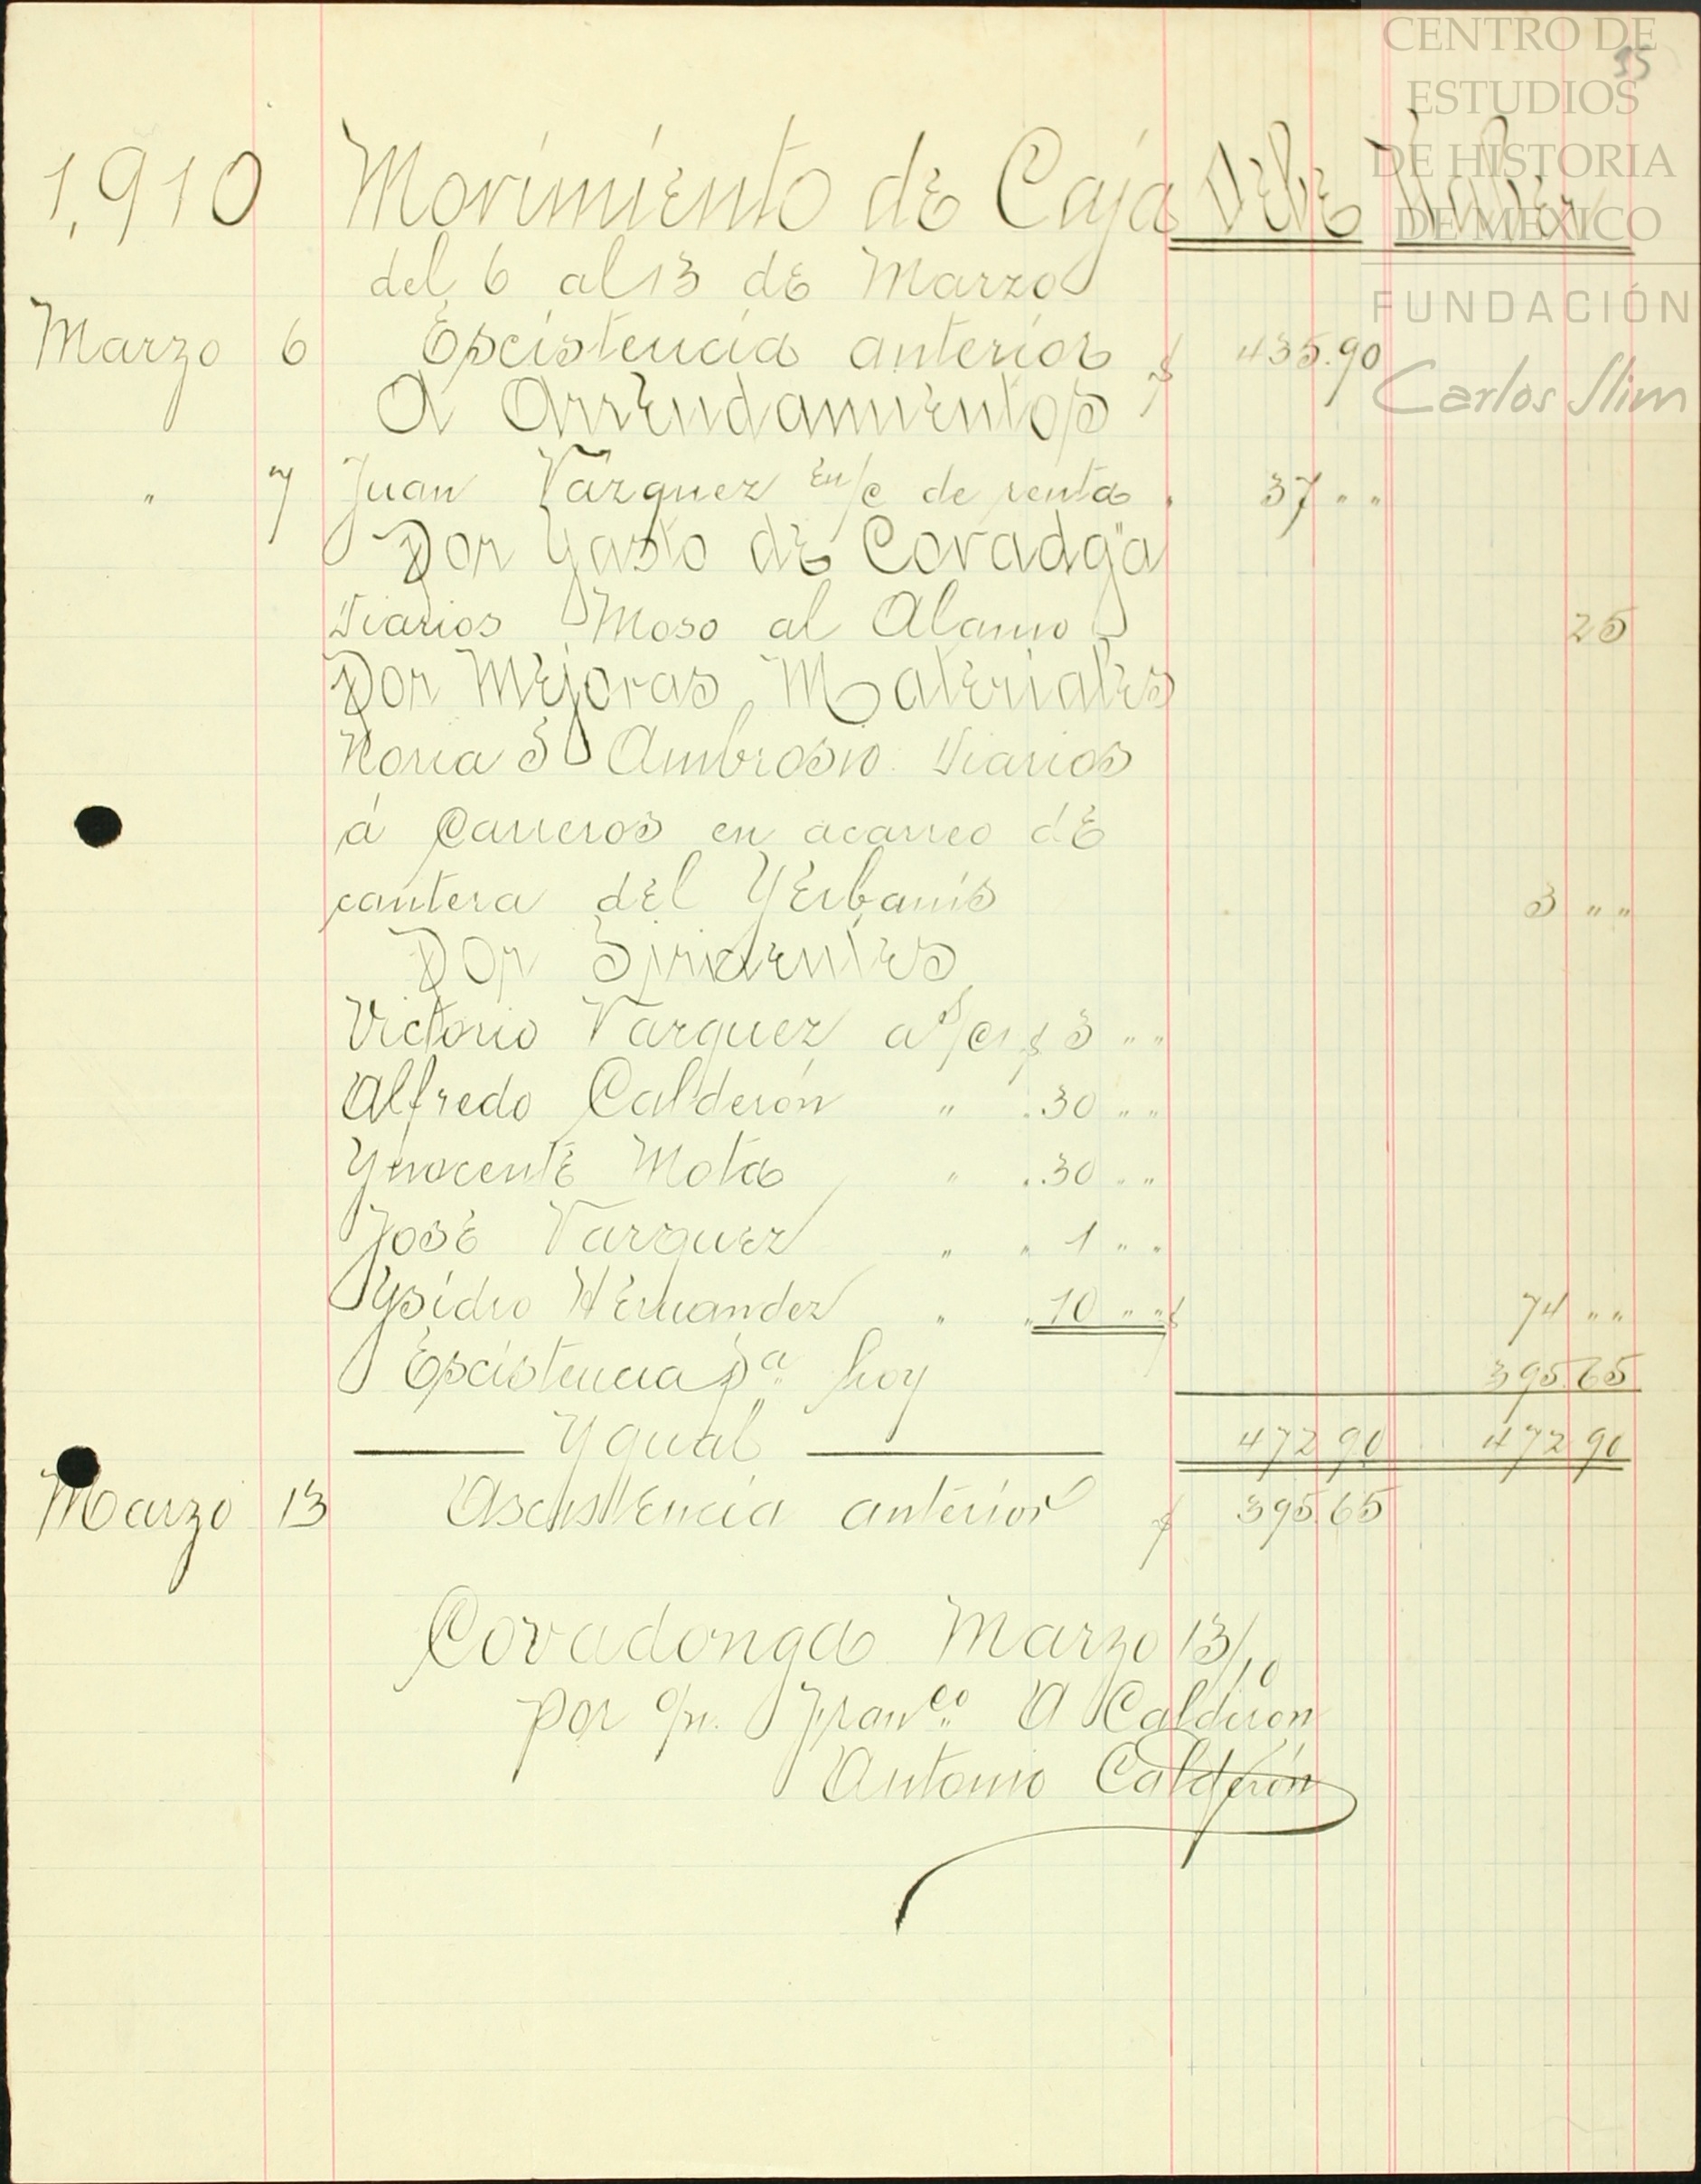 CENTRO DE
ESTUDIOS
DE HISTORIA
DE MEXICO
FUNDACIÓN
Carlos Slim
35
1,910 Movimiento de Caja Debe Haber
del 6 al 13 de Marzo
Marzo 6 Epcistencia anterior $ 435.90
A Arrendamientos
" 7 Juan Vazquez en/c de renta . 37 " "
Por Gasto de Covadga
Viarios Moso al Alamo 25
Por Mejoras Materiales
Noria S Ambrosio Viarios
á Carreros en acarreo de
cantera del Yerbanis 3 " "
Por Sirvientes
Victorio Vazquez a $ 3 " "
Alfredo Calderón " . 30 " "
Ynocente Mota " . 30 " "
José Vazquez " " 1 " "
Ysidro Hernandez " " 10 " " $ 74 " "
Epcistencia pa. hoy 395.65
Ygual 472 90 472 90
Marzo 13 anterior $ 395.65
Covadonga Marzo 13/10
por Franco. A Calderón
Antonio Calderón